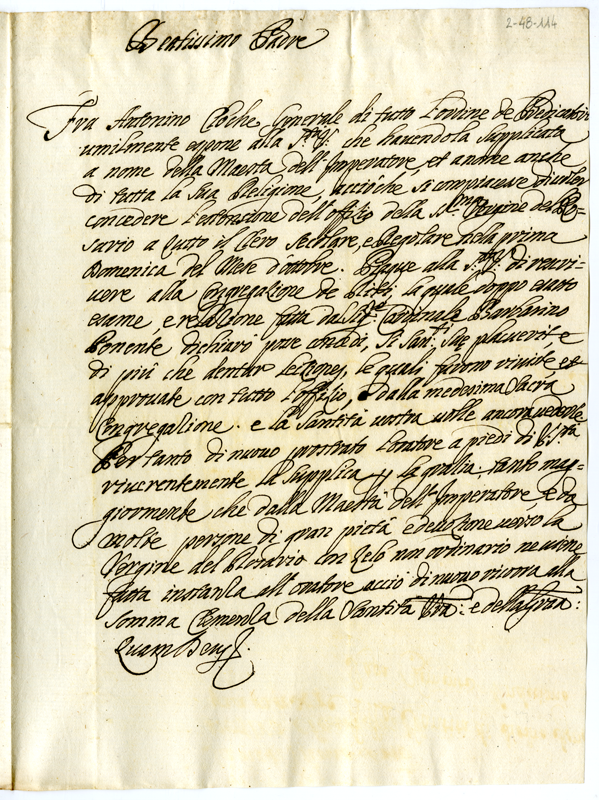 2-48-114
Beatissimo Padre
Fra Antonino Cloche Generale di tutto l'ordine de Predicatori
umilmente espone alla S.tà V.ra che havendola supplicata
a nome della Maestà dell'Imperatore, et a nome anche
di tutta la sua Religione, acciòche si compiacesse di voler
concedere l'estensione dell'offizio della SS.ma Vergine del Ro=
sario a tutto il Clero secolare, e Regolare nella prima
Domenica del Mese d'ottobre. Piaque alla S.tà V.ra di rescri=
vere alla Congregazione de Riti, la quale doppo esatto
esame, e relazione fatta dal Sig.r Cardinale Barbarino
Ponente dichiarò pose concedi, si San.ti Suae placuerit, e
di più che dentur lectiones, le quali furono rivvite, et
approvate con tutto l'offizio, dalla medesima Sacra
Congregazione. e la Santità vostra volle ancora vederle
Pertanto di nuovo prostrato l'oratore a piedi di V. S.tà
riverentemente la supplica p la grazia, tanto mag=
giormente che dalla Maestà dell'Imperatore, e da
molte persone di gran pietà e devozione verso la
Vergine del Rosario con zelo non ordinario ne viene
fatta instanza all'oratore acciò di nuovo ricorra alla
somma Clemenza della Santità V.ra: e della Gran:
Quam Deus.